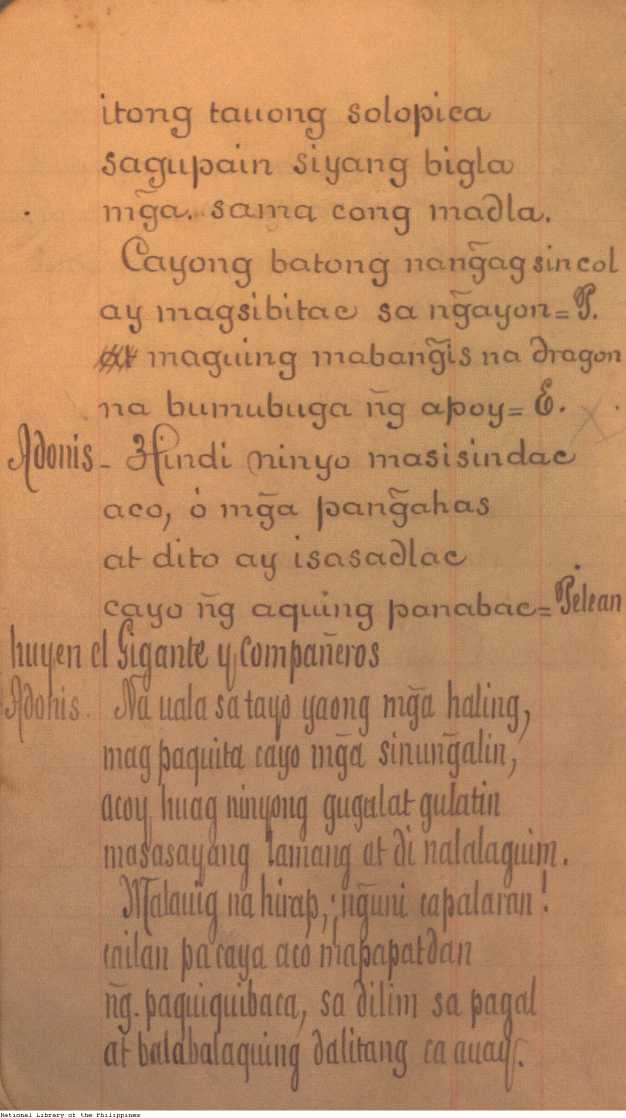 itong tauong solopica
sagupain siyang bigla
mg̃a. sama cong madla.
Cayong batong nang̃agsincol
ay magsibitac sa ng̃ayon=P.
maguing mabang̃is na dragon
na bumubuga ñg apoy= E.
Adonis - Hindi ninyo masisindac
aco, ó mg̃a pang̃ahas
at dito ay isasadlac
cayo ñg aquing panabac= Pelean
huyen el Gigante y Compañeros
Adonis. Na uala sa tayo yaong mg̃a haling,
mag paquita cayo mg̃a sinung̃alin,
acoy huag ninyong gugulat gulatin
masasayang lamang at di nalalaguim.
Malauig na hirap, ng̃uni capalaran!
cailan pa caya aco mapapatdan
ñg. paquiquibaca, sa dilim sa pagal
at balabalaquing dalitang ca auay.
National Library of the Philippines